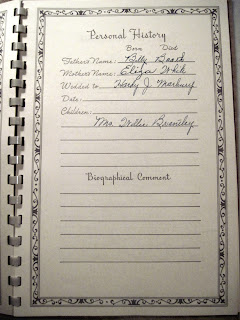 Personal History
Born Died
Father's Name: Billy
Mother's Name: Eliza White
Wedded to: Henry J. Marbury
Date:
Children:
Mrs. Willie Brantley
Biographical Comment